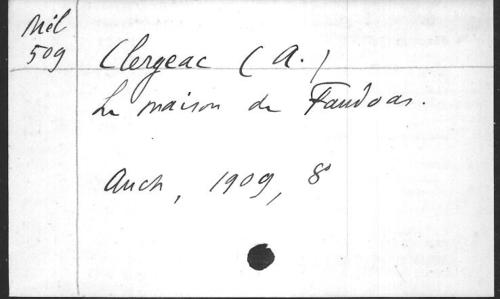 Mél
509
Clergeac (A.)
La maison de Faudoas.
Auch, 1909, 8°